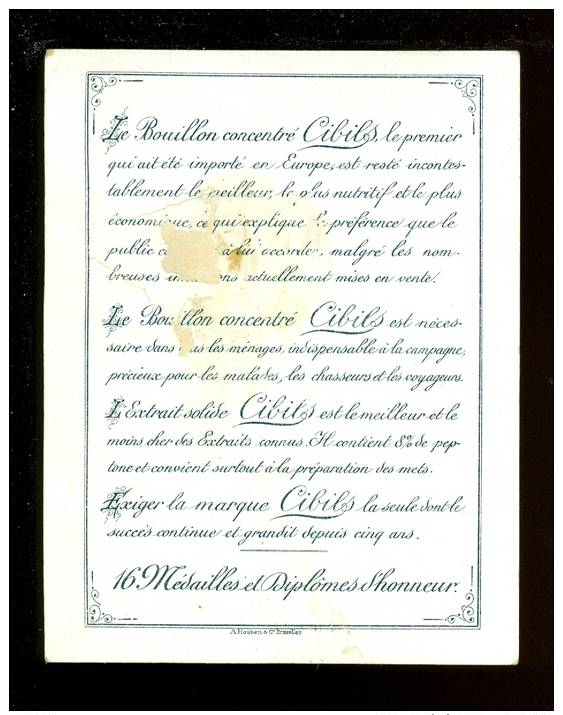 Le Bouillon concentré Cibils, le premier
qui ait été importé en Europe, est resté incontes-
tablement le meilleur, le plus nutritif et le plus
économique, ce qui explique la préférence que le
public à lui accorder, malgré les nom-
breuses actuellement mises en vente.
Le Bouillon concentré Cibils est néces-
saire dans tous les ménages, indispensable à la campagne,
précieux pour les malades, les chasseurs et les voyageurs.
L'Extrait solide Cibils est le meilleur et le
moins cher des Extraits connus. Il contient 8% de pep-
tone et convient surtout à la préparation des mets.
Exiger la marque Cibils la seule dont le
succès continue et grandit depuis cinq ans.
16 Médailles et Diplômes d'honneur.
A. Houben & Cie Bruxelles